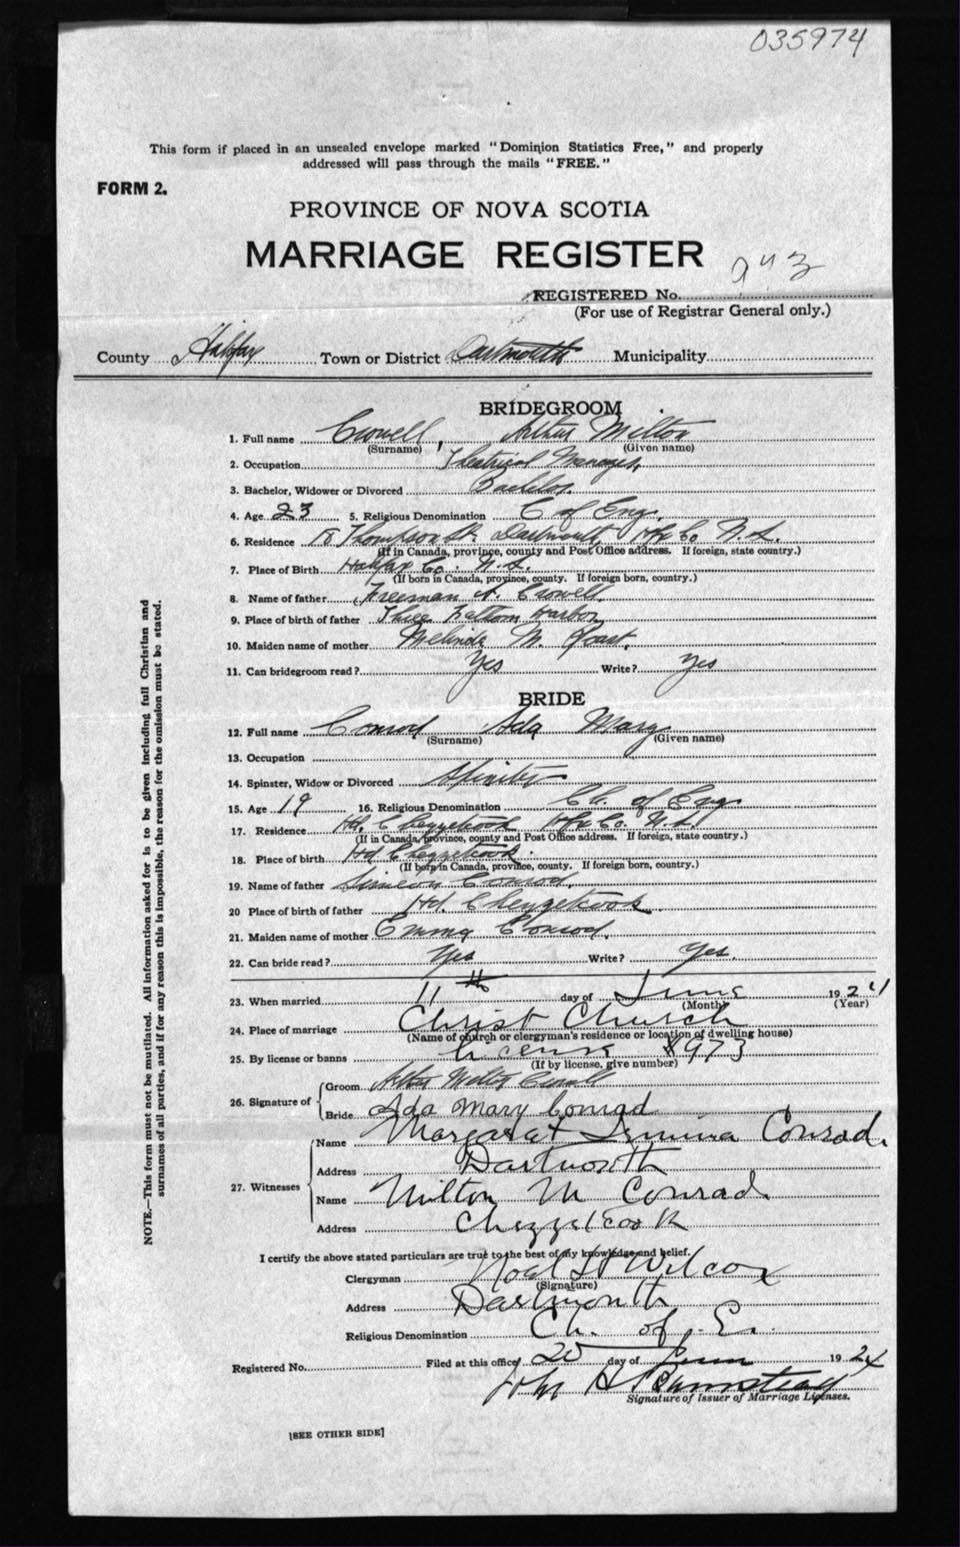 035974
This form if placed in an unsealed envelope marked "Dominion Statistics Free," and properly
addressed will pass through the mails "FREE."
FORM 2.
PROVINCE OF NOVA SCOTIA
MARRIAGE REGISTER
REGISTERED No.
(For use of Registrar General only.)
County Halifax Town or District Dartmouth Municipality
BRIDEGROOM
1. Full name Crowell, Arthur Milton
(Surname) (Given name)
2. Occupation Theatrical Manager
3. Bachelor, Widower or Divorced Bachelor
4. Age 23 5. Religious Denomination C of Eng.
6. Residence Thompson St. Dartmouth Hfx Co N.S.
(If in Canada, province, county and Post Office address. If foreign, state country.)
7. Place of Birth Halifax Co. N.S.
(If born in Canada, province, county. If foreign born, country.)
8. Name of father Freeman A. Crowell
9. Place of birth of father Three Fattom Harbor
10. Maiden name of mother Melinda M.
11. Can bridegroom read? Yes Write? Yes
BRIDE
12. Full name Conrod Ada Mary
(Surname) (Given name)
13. Occupation
14. Spinster, Widow or Divorced Spinster
15. Age 19 16. Religious Denomination Ch. of Eng
17. Residence Hd. Chezzetcook Hfx Co. N.S.
(If in Canada, province, county and Post Office address. If foreign, state country.)
18. Place of birth Hd Chezzetcook.
(If born in Canada, province, county. If foreign born, country.)
19. Name of father Simeon Conrod
20 Place of birth of father Hd. Chezzetcook
21. Maiden name of mother Emma Conrod.
22. Can bride read? Yes Write? Yes.
23. When married 11th day of June 1924
(Month) (Year)
24. Place of marriage Christ Church
(Name of church or clergyman's residence or location of dwelling house)
25. By license or banns License 973
(If by license, give number)
26. Signature of Groom Arthur Milton Crowell
Bride Ada Mary Conrad
27. Witnesses Name Margaret Conrad
Address Dartmouth
Name Milton M Conrad
Address Chezzetcook
I certify the above stated particulars are true to the best of my knowledge and belief.
Clergyman Noel H Wilcox
(Signature)
Address Dartmouth
Religious Denomination Ch. of E.
Registered No. Filed at this office 20 day of June 1924
John H
Signature of Issuer of Marriage Licenses.
[SEE OTHER SIDE]
NOTE.—This form must not be mutilated. All information asked for is to be given including full Christian and
surnames of all parties, and if for any reason this is impossible, the reason for the omission must be stated.